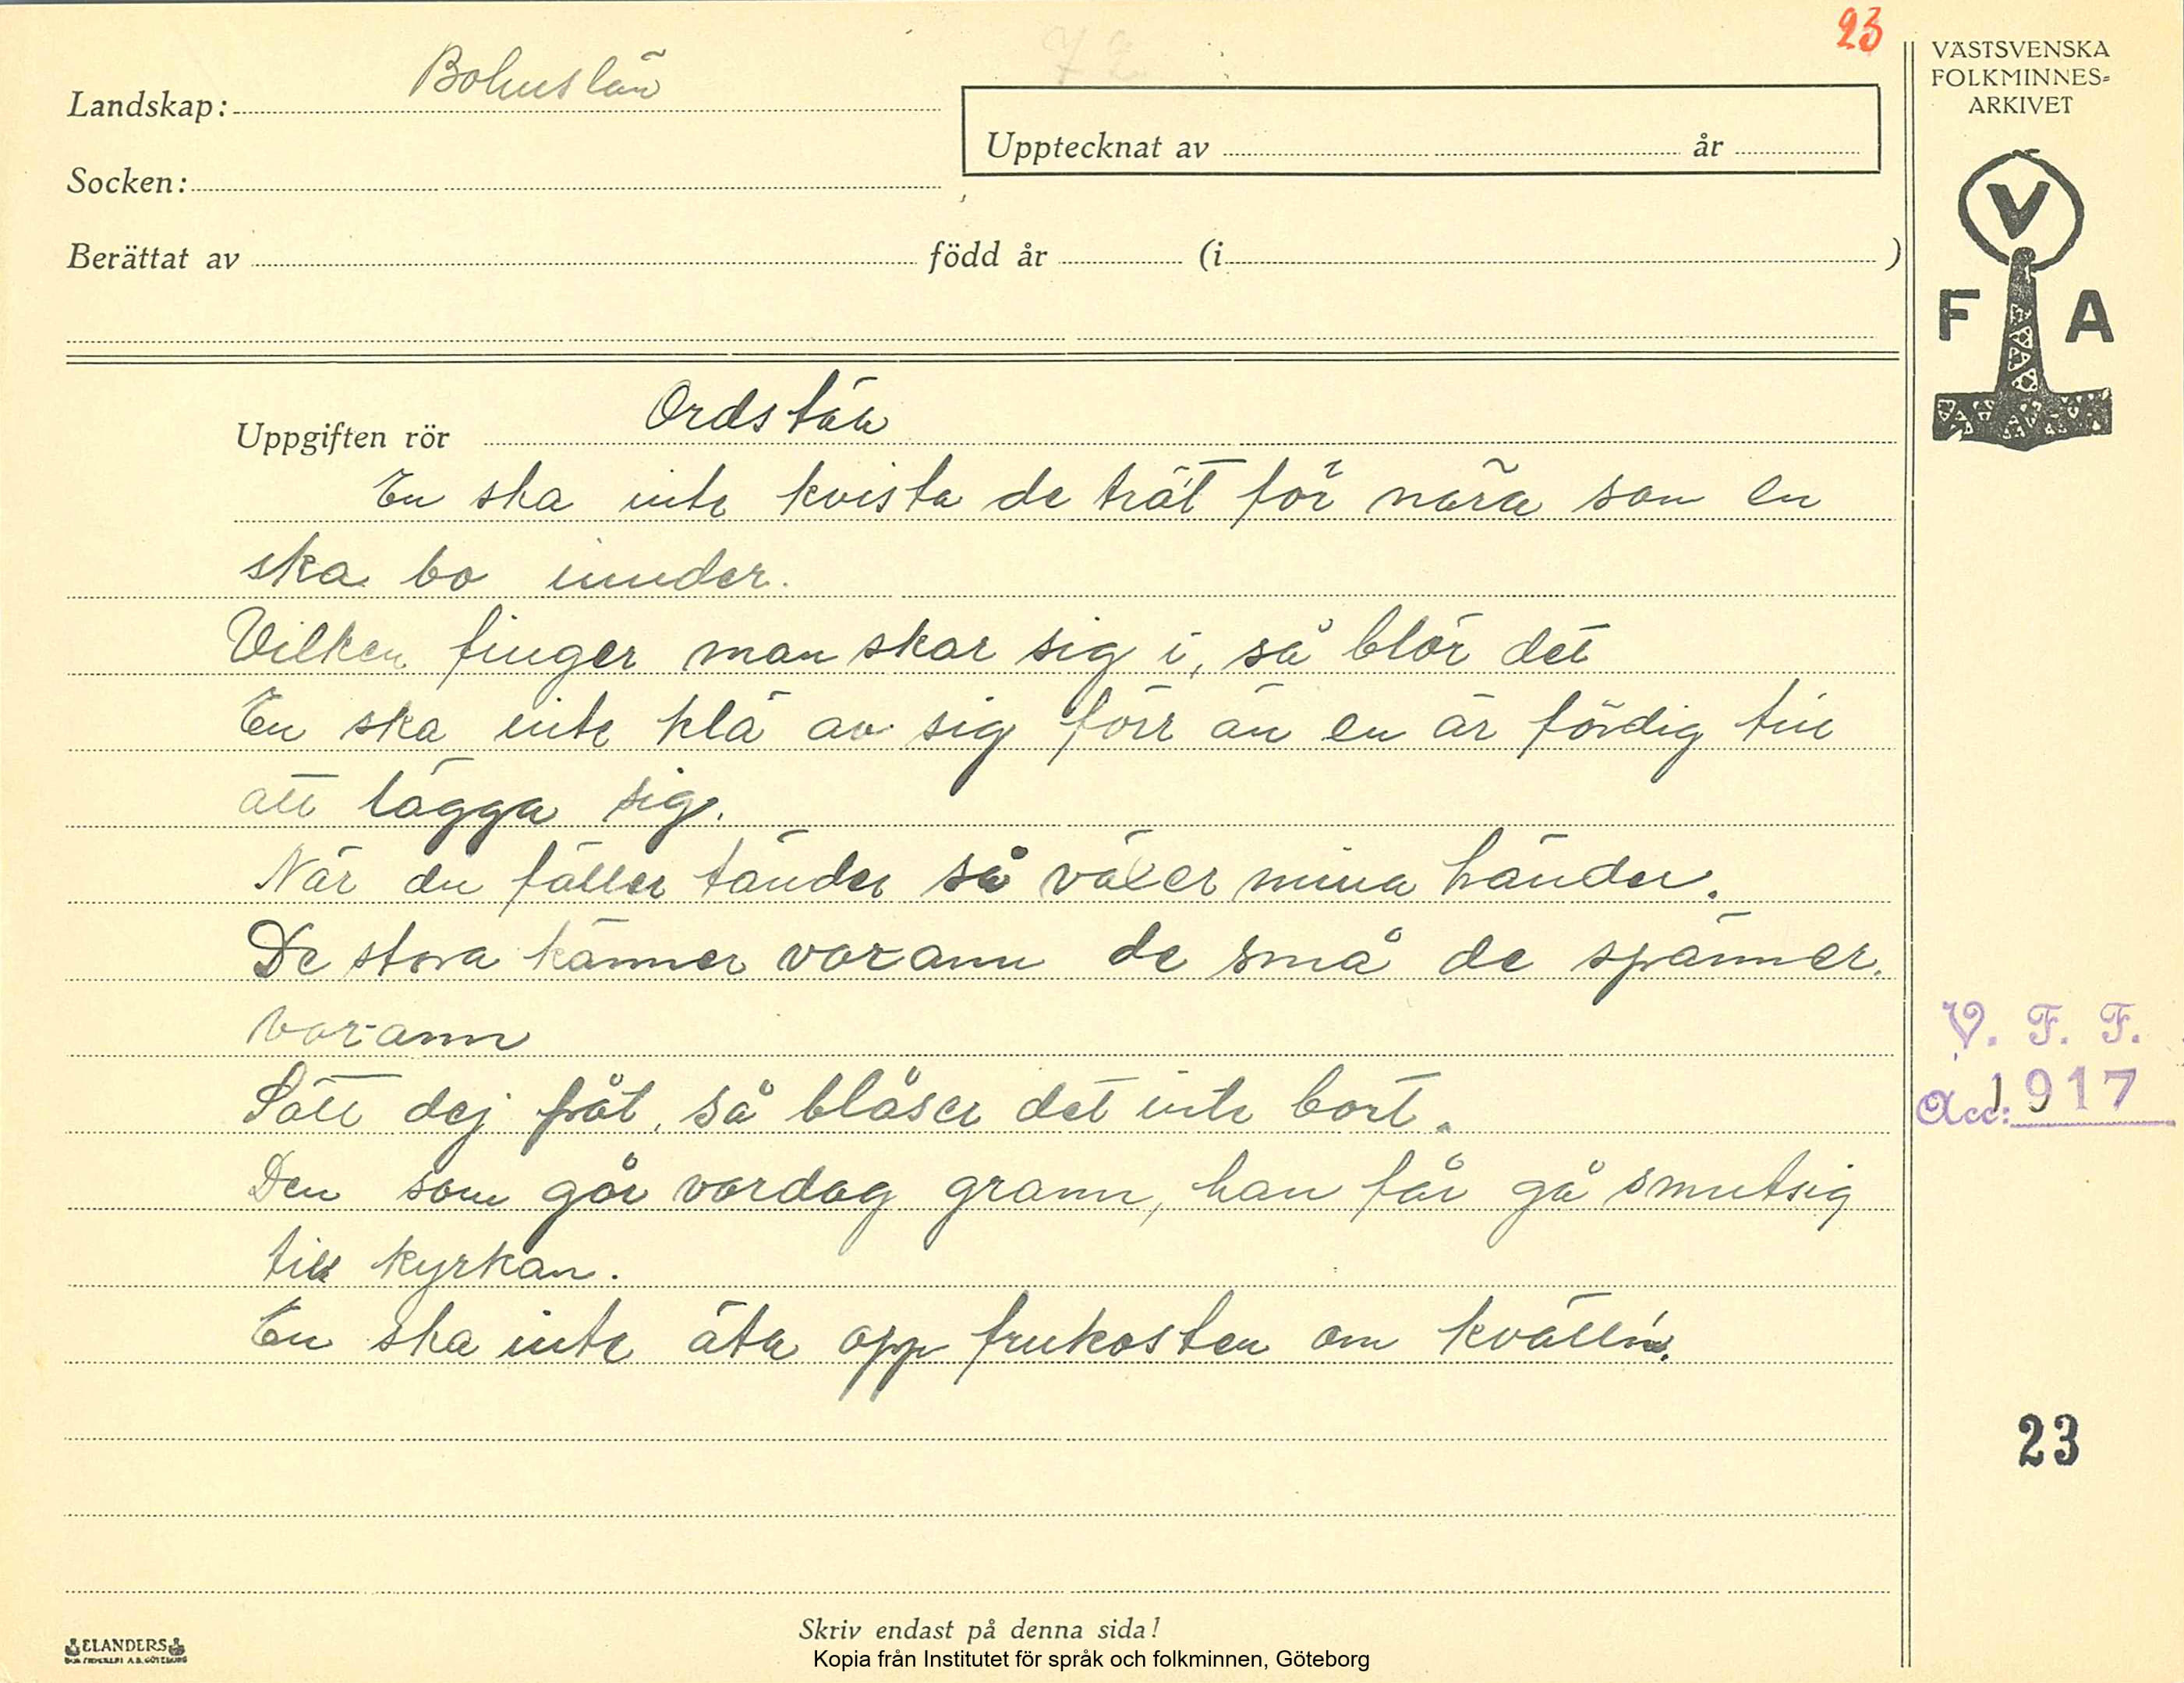 23
VÄSTSVENSKA
FOLKMINNES=
ARKIVET
Landskap: Bohuslän
Upptecknat av år
Socken:
Berättat av född år (i )
V
F A
Uppgiften rör Ordstäv
En ska inte kvista de trät för nära som en
ska bo inunder.
Vilken finger man skär sig i, så blör det
En ska inte klä av sig förr än en är färdig till
att lägga sig.
När du fäller tänder så växer mina händer.
De stora känner varann de små de spänner
varann
Sätt dej på't, så blåser det inte bort.
Den som går vardag grann, han får gå smutsig
till kyrkan.
En ska inte äta opp frukosten om kvälln.
V. F. F.
Acc: 1917
23
ELANDERS
Skriv endast på denna sida!
Kopia från Institutet för språk och folkminnen, Göteborg